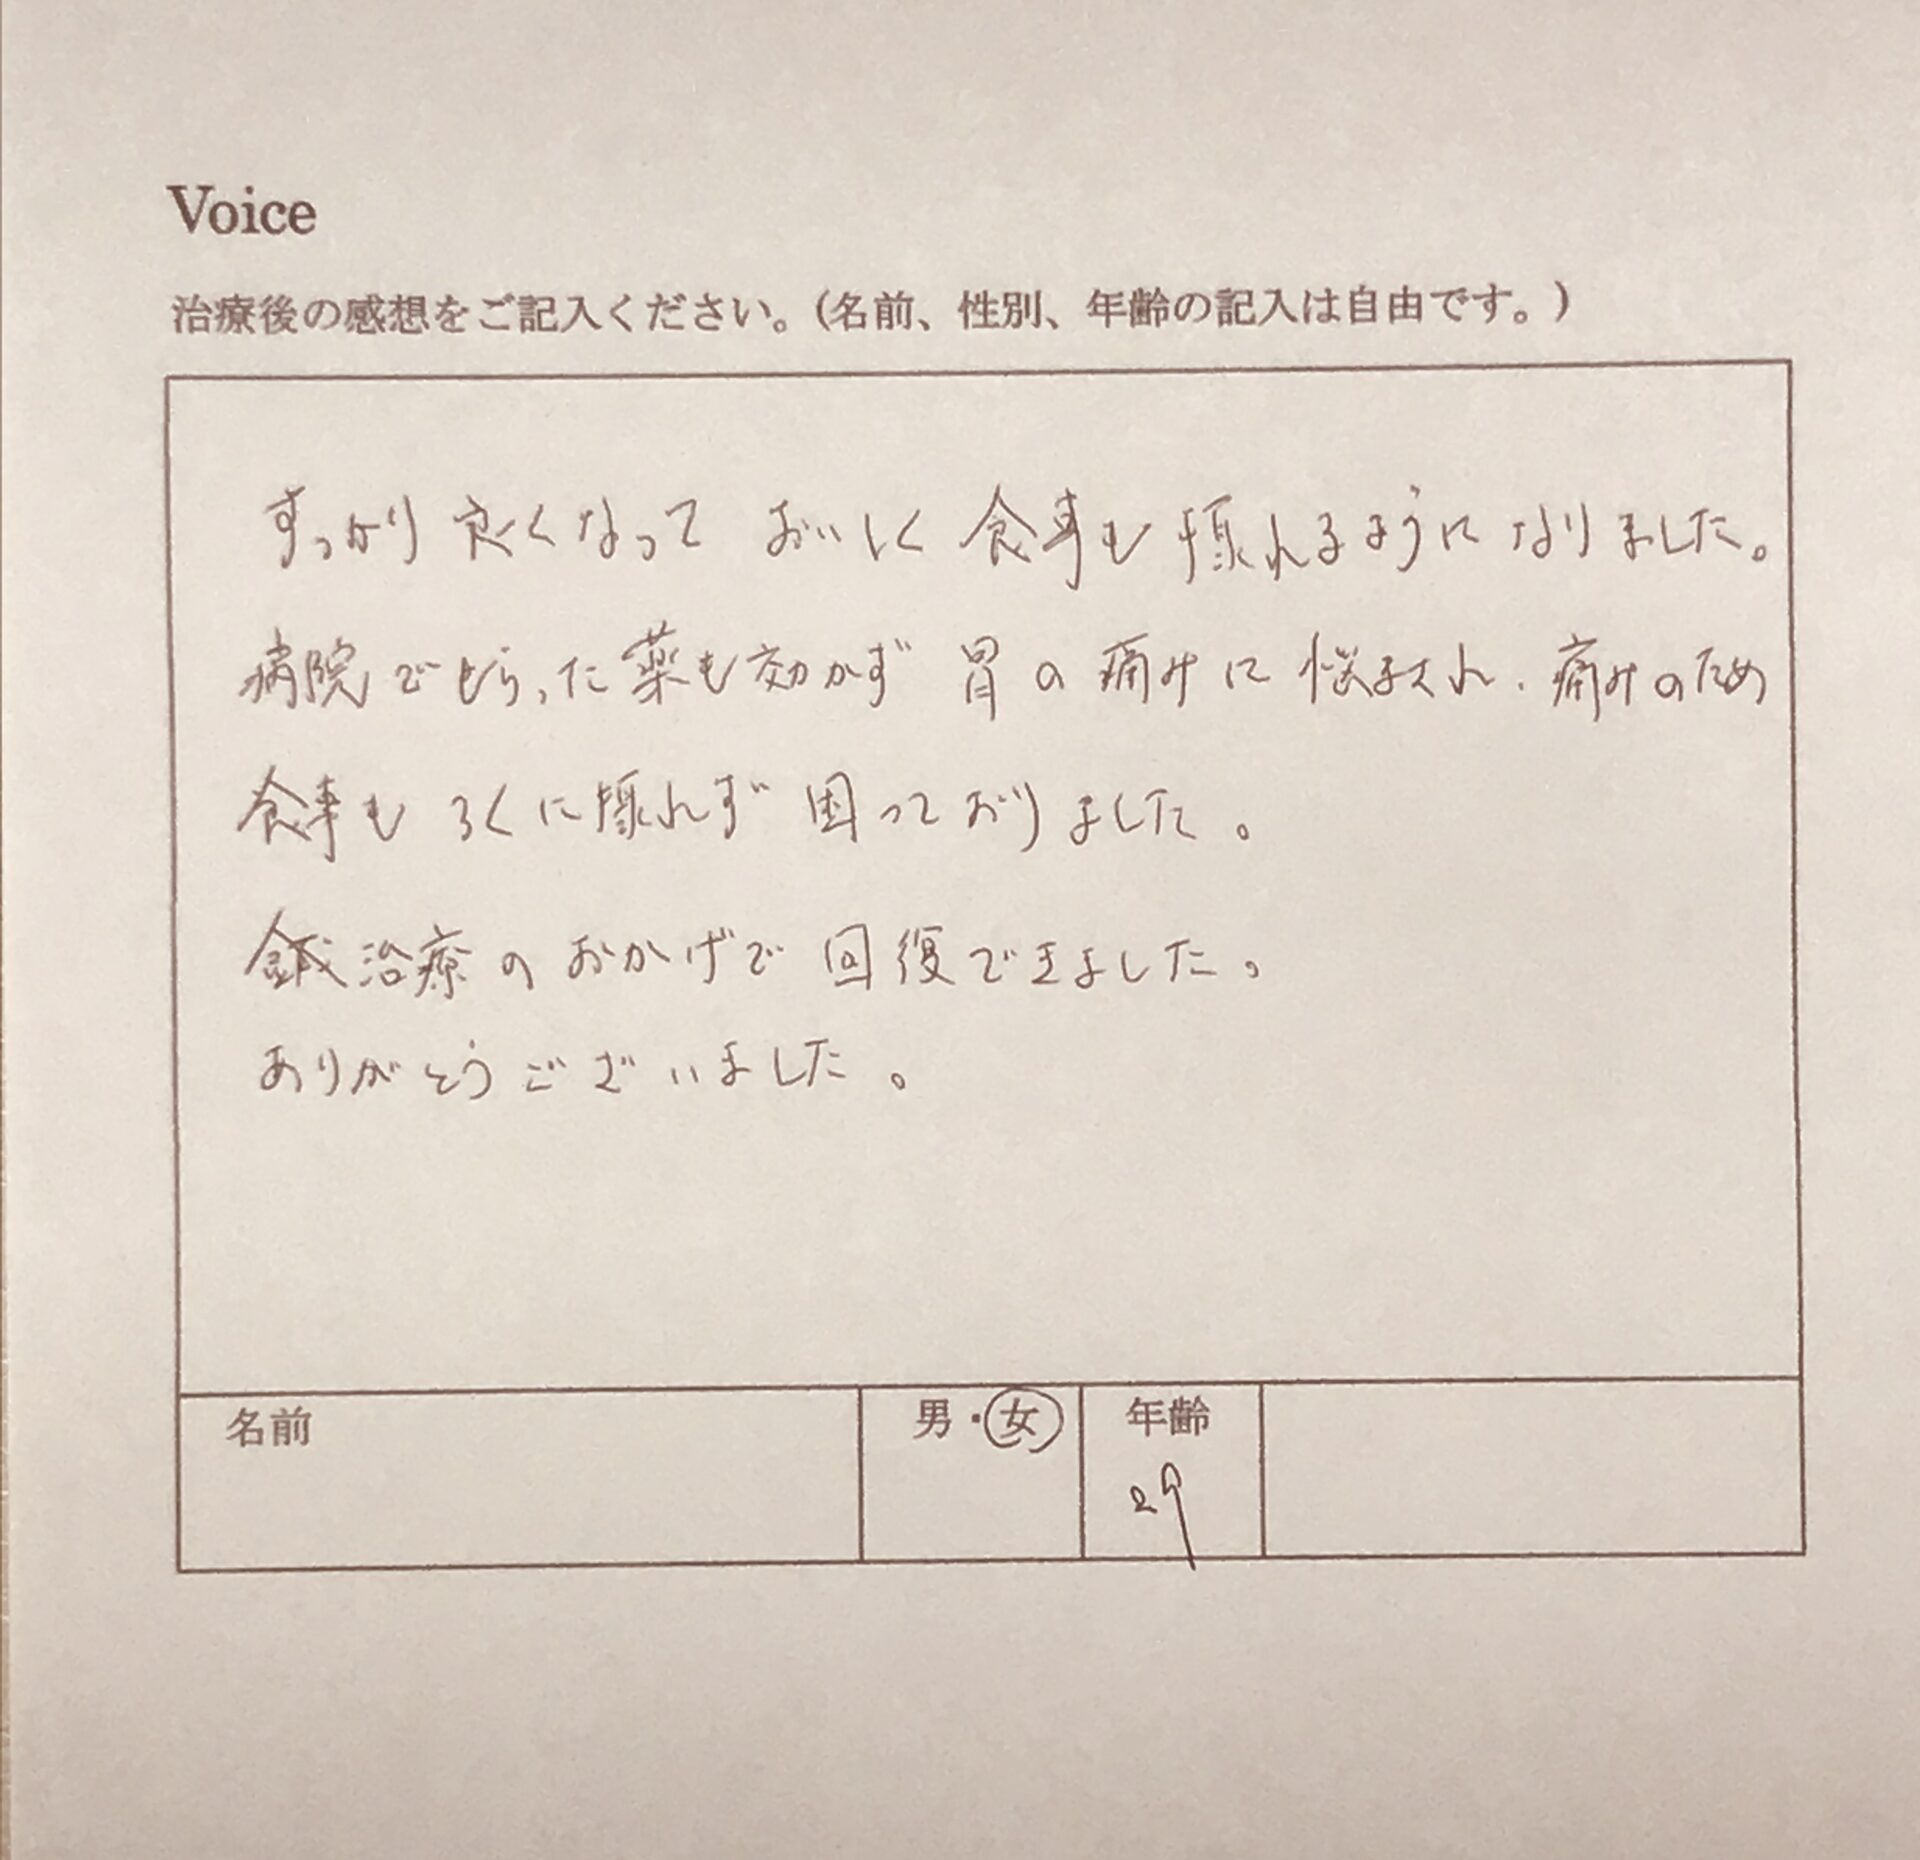 Voice
治療後の感想をご記入ください。(名前、性別、年齢の記入は自由です。)
すっかり良くなって おいしく 食事も 摂れるようになりました。
病院でもらった薬も効かず 胃の痛みに 悩まされ、痛みのため
食事も ろくに摂れず 困っておりました。
鍼治療のおかげで 回復できました。
ありがとうございました。
名前 男・女 年齢
29